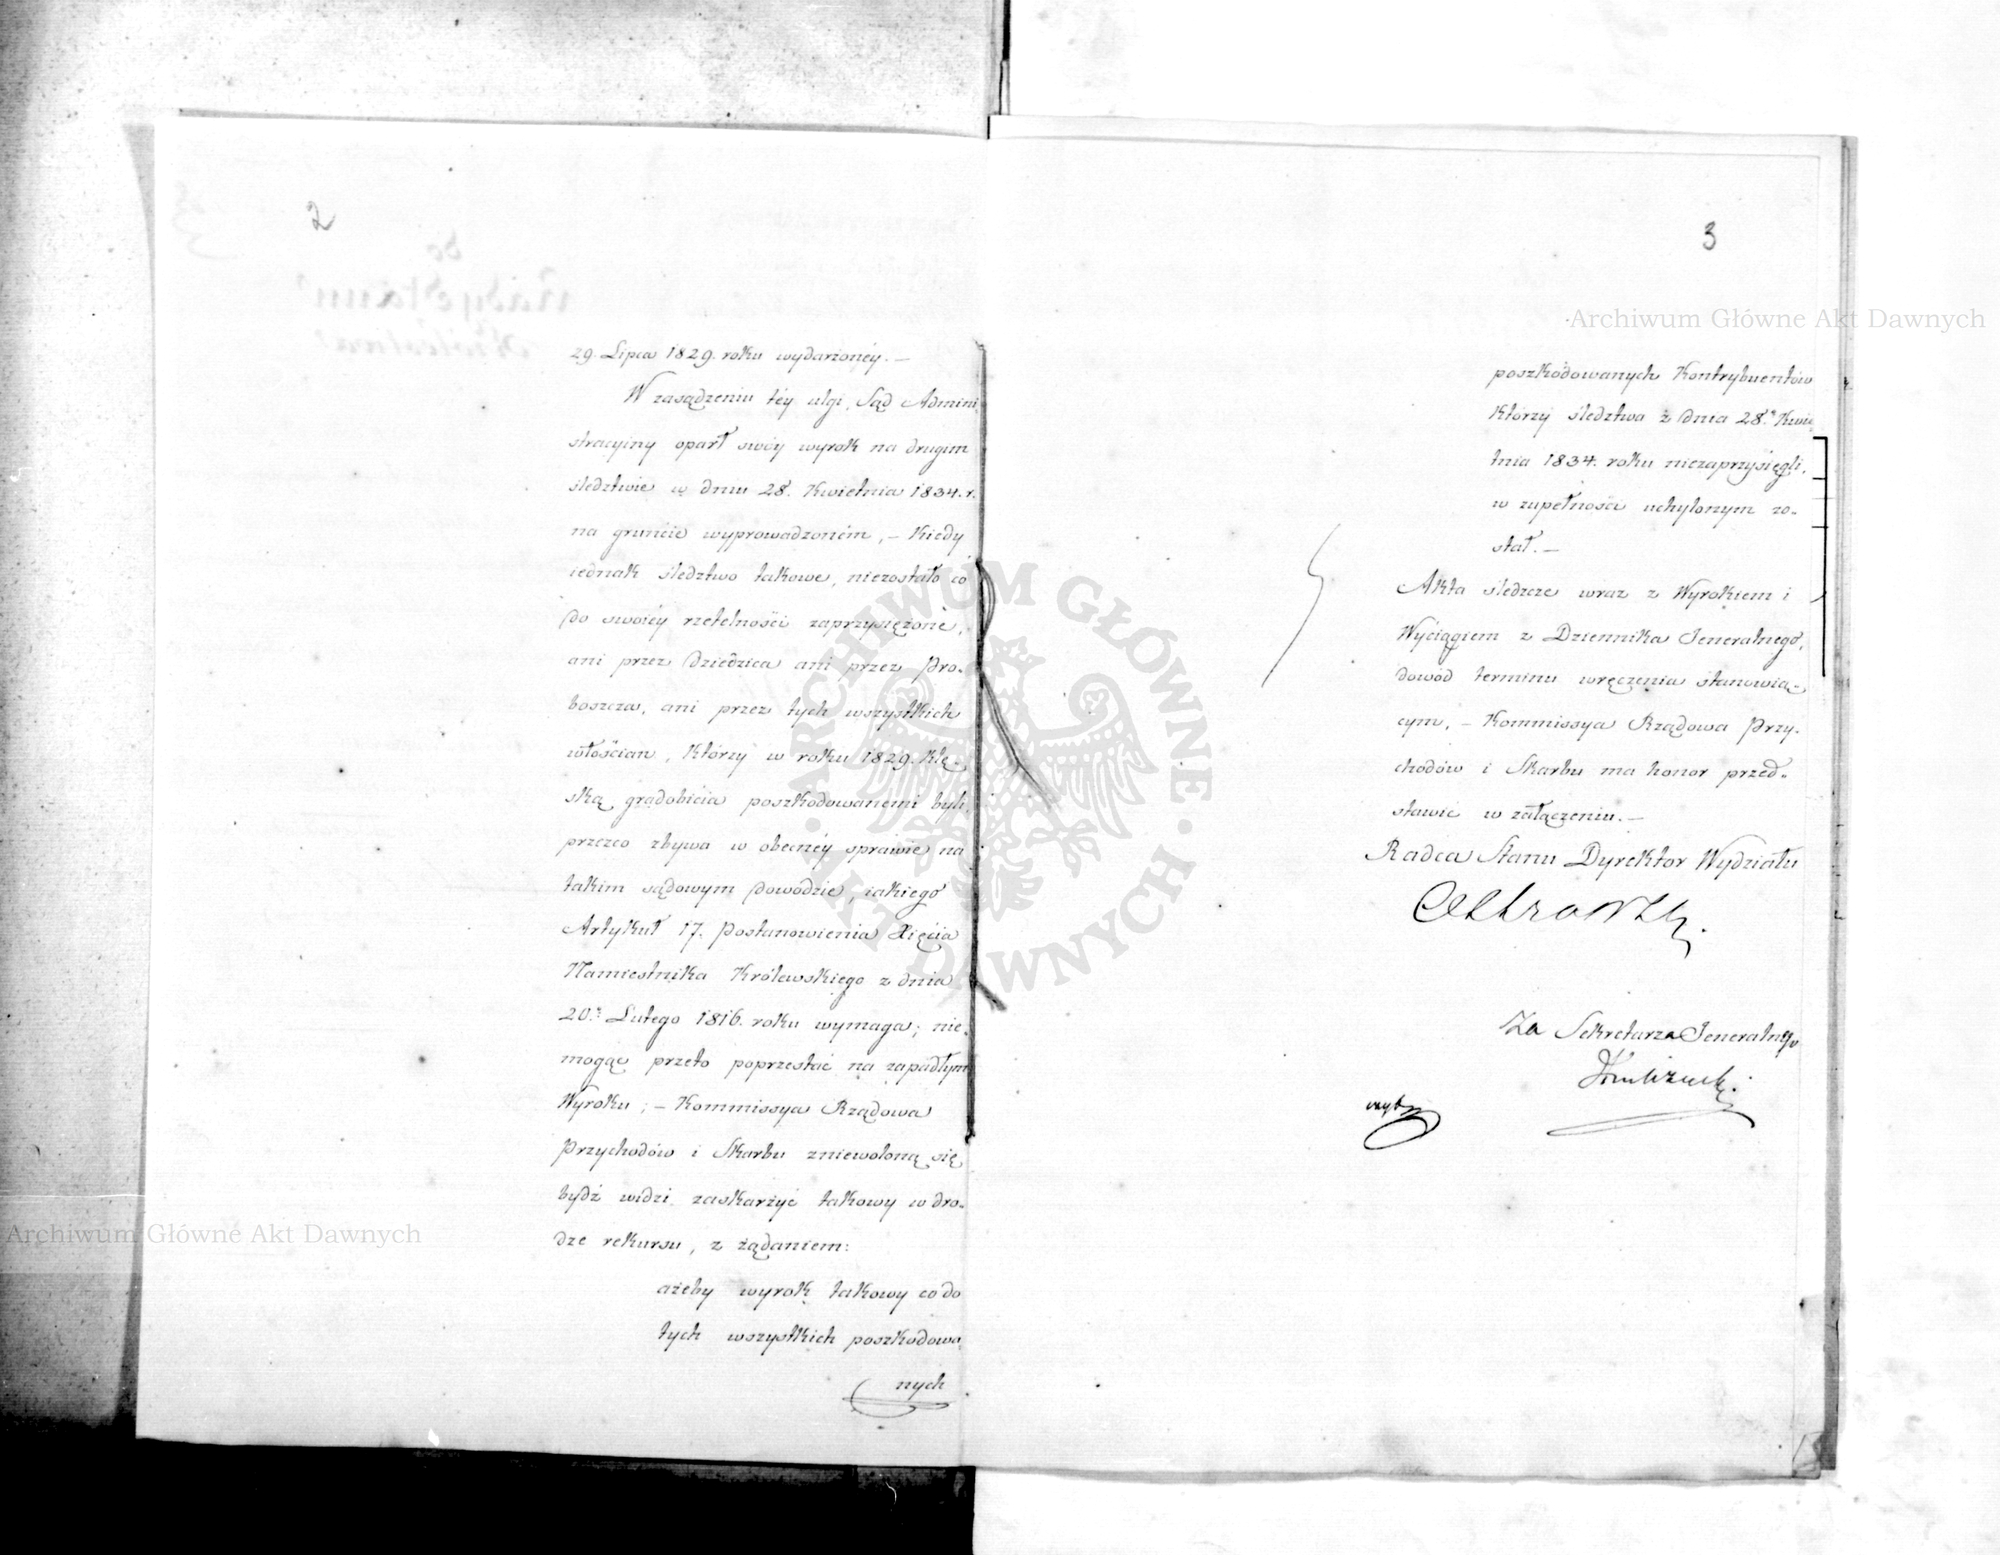 2
29. Lipca 1829. roku wydarzonéy. —
W zasądzeniu téy ulgi, Sąd Admini
stracyiny oparł swóy wyrok na drugim
śledztwie w dniu 28. Kwietnia 1834. r.
na gruncie wyprowadzoném, — Kiedy
iednak śledztwo takowe, niezostało co
do swoiéy rzetelności zaprzysiężone,
ani przez Dziedzica ani przez Pro-
boszcza, ani przez tych wszystkich
włościan, którzy w roku 1829. klę-
ską gradobicia poszkodowanemi byli,
przezco zbywa w obecnéy sprawie na
takim sądowym dowodzie, iakiego
Artykuł 17. Postanowienia Xięcia
Namiestnika Królewskiego z dnia
20. Lutego 1816. roku wymaga; nie-
mogąc przeto poprzestać na zapadłym
Wyroku; — Kommissya Rządowa
Przychodów i Skarbu zniewoloną się
bydź widzi zaskarżyć takowy w dro-
dze rekursu, z żądaniem:
ażeby wyrok takowy co do
tych wszystkich poszkodowa
nych
3
poszkodowanych Kontrybuentów
którzy śledztwa z dnia 28. Kwie
tnia 1834. roku niezaprzysięgli,
w zupełności uchylonym zo-
stał. —
Akta śledcze wraz z Wyrokiem i
Wyciągiem z Dziennika Jeneralnego,
dowód terminu wręczenia stanowią-
cym, — Kommissya Rządowa Przy-
chodów i Skarbu ma honor przed-
stawić w załączeniu. —
Radca Stanu Dyrektor Wydziału
Za Sekretarza Jeneralnego
Archiwum Główne Akt Dawnych
Archiwum Główne Akt Dawnych
ARCHIWUM GŁÓWNE AKT DAWNYCH